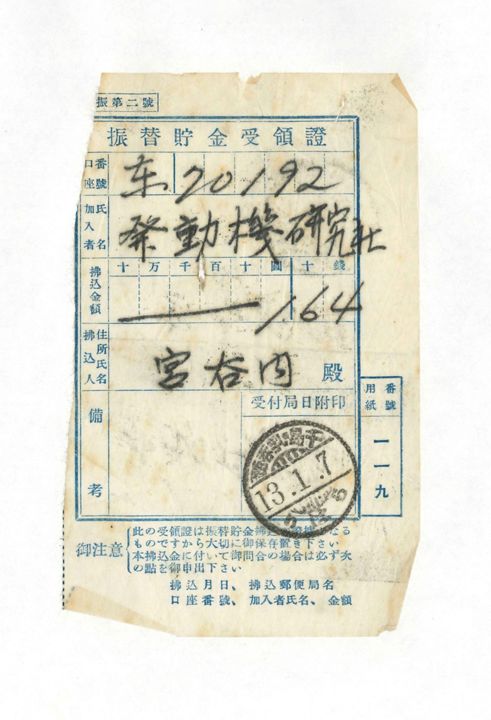 振第二號
振替貯金受領證
口座番號 东20192
加入者氏名 発動機研究社
拂込金額 十万千百十圓十錢
164
拂込人住所氏名 宮谷内 殿
備考
受付局日附印
13.1.7
用紙番號 一一九
御注意
此の受領證は振替貯金拂込の證據となる
ものですから大切に御保存置き下さい
本拂込金に付いて御問合の場合は必ず次
の點を御申出下さい
拂込月日、拂込郵便局名
口座番號、加入者氏名、金額